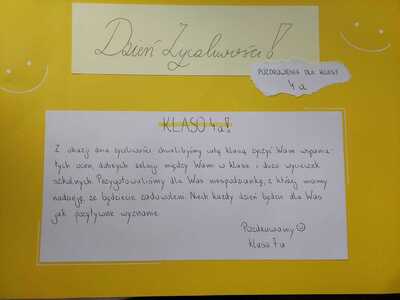 Dzień Życzliwości!
POZDROWIENIA DLA KLASY
4 a
KLASO 4a!
Z okazji dnia życzliwości chcielibyśmy całą klasą życzyć Wam wspania-
łych ocen, dobrych relacji między Wami w klasie i dużo wycieczek
szkolnych. Przygotowaliśmy dla Was niespodziankę, z której mamy
nadzieję, że będziecie zadowoleni. Niech każdy dzień będzie dla Was
jak pozytywne wyzwanie.
Pozdrawiamy
klasa 7a